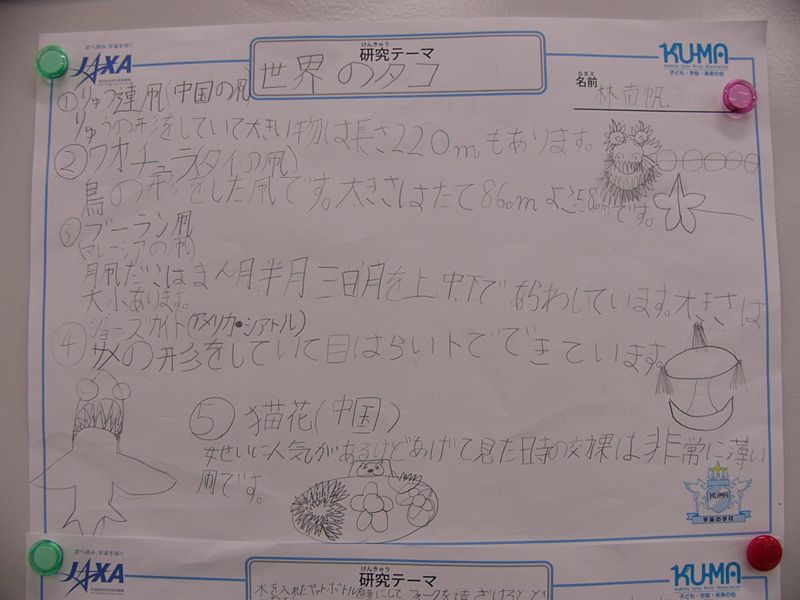 宙へ挑み、宇宙を拓く
JAXA
けんきゅう
研究テーマ
世界のタコ
KU-MA
子ども・宇宙・未来の会
なまえ
名前
林南帆
①りゅう連凧(中国の凧
りゅうの形をしていて大きい物は長さ220mもあります。
②ワオチュラ(タイの凧)
鳥の形をした凧です。大きさはたて86cmよこ58cmです。
③ブーラン凧
マレーシアの凧)
月凧だこはまん月半月、三日月を上、中、下であらわしています。大きさは
大小あります。
④ジョーズカイト(アメリカ・シアトル)
サメの形をしていて目はらいトでできています。
⑤猫花(中国)
女せいに人気があるけどあげて見た時の効果は非常に薄い
凧です。
KUMA
宇宙の学校
JAXA
けんきゅう
研究テーマ
水を入れたペットボトル
KU-MA
子ども・宇宙・未来の会